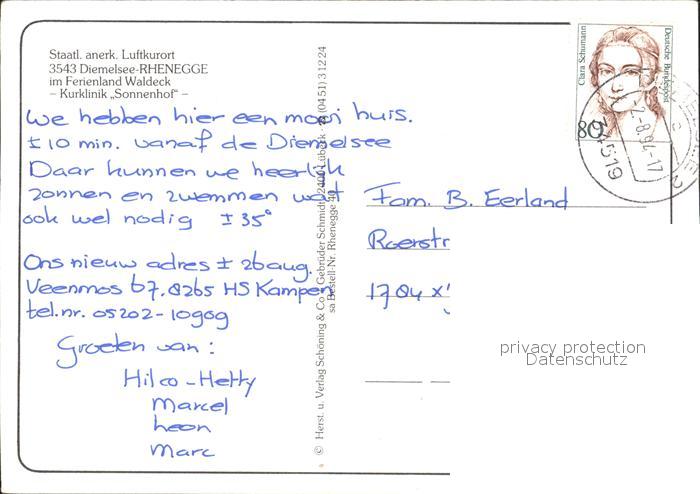 Staatl. anerk. Luftkurort
3543 Diemelsee-RHENEGGE
im Ferienland Waldeck
– Kurklinik „Sonnenhof“ –
We hebben hier een mooi huis.
± 10 min. vanaf de Diemelsee
Daar kunnen we heerlijk
zonnen en zwemmen wat
ook wel nodig ± 35°
Ons nieuw adres ± 26 aug.
Veenmos 67. 8265 HS Kampen
tel.nr. 05202-10909
Groeten van:
Hilco-Hetty
Marcel
Leon
Marc
© Herst. u. Verlag Schöning & Co + Gebrüder Schmidt, 2400 Lübeck (0451) 3 12 24
sa Bestell-Nr. Rhenegge
Clara Schumann
Deutsche Bundespost
80
-8.94-17
34519
Fam. B. Eerland
Roerstr
1704 X
privacy protection
Datenschutz